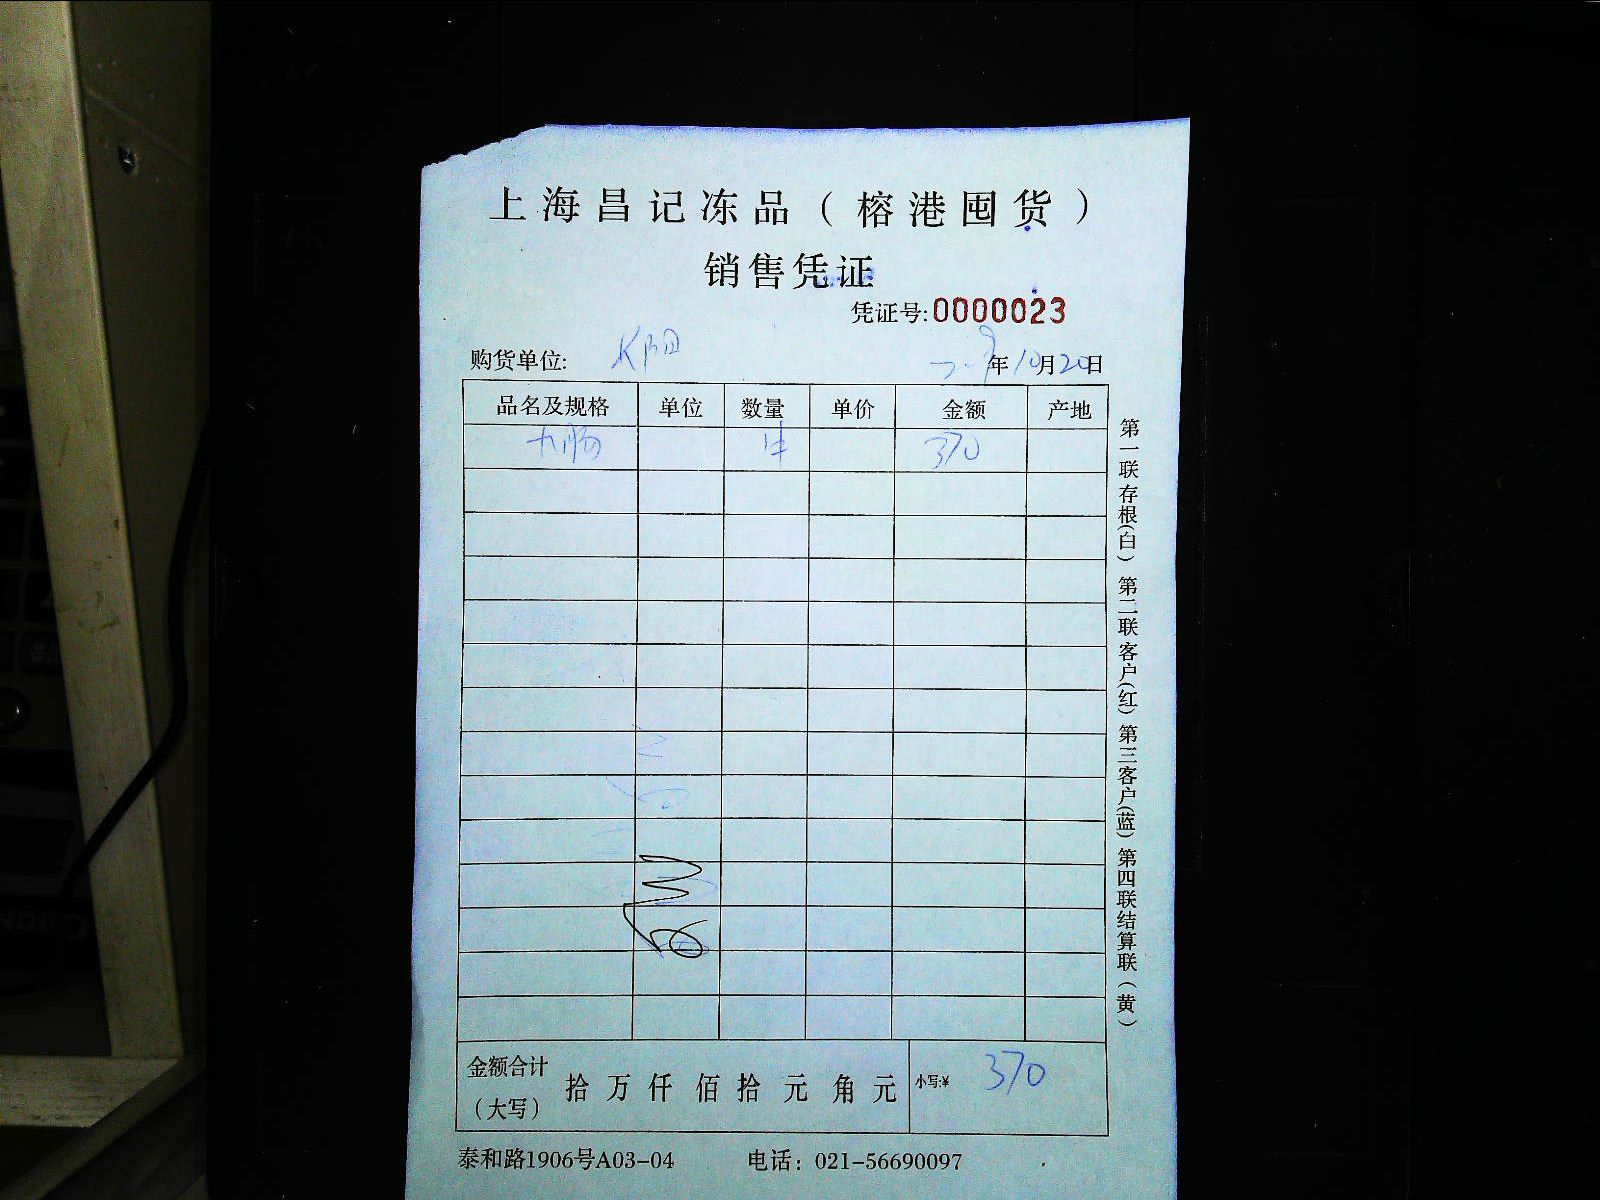 上海昌记冻品（榕港囤货）
销售凭证
凭证号:0000023
购货单位:
年10月20日
品名及规格 单位 数量 单价 金额 产地
370
金额合计（大写） 拾 万 仟 佰 拾 元 角 元 小写:¥ 370
泰和路1906号A03-04 电话：021-56690097
第一联存根(白) 第二联客户(红) 第三客户(蓝) 第四联结算联(黄)